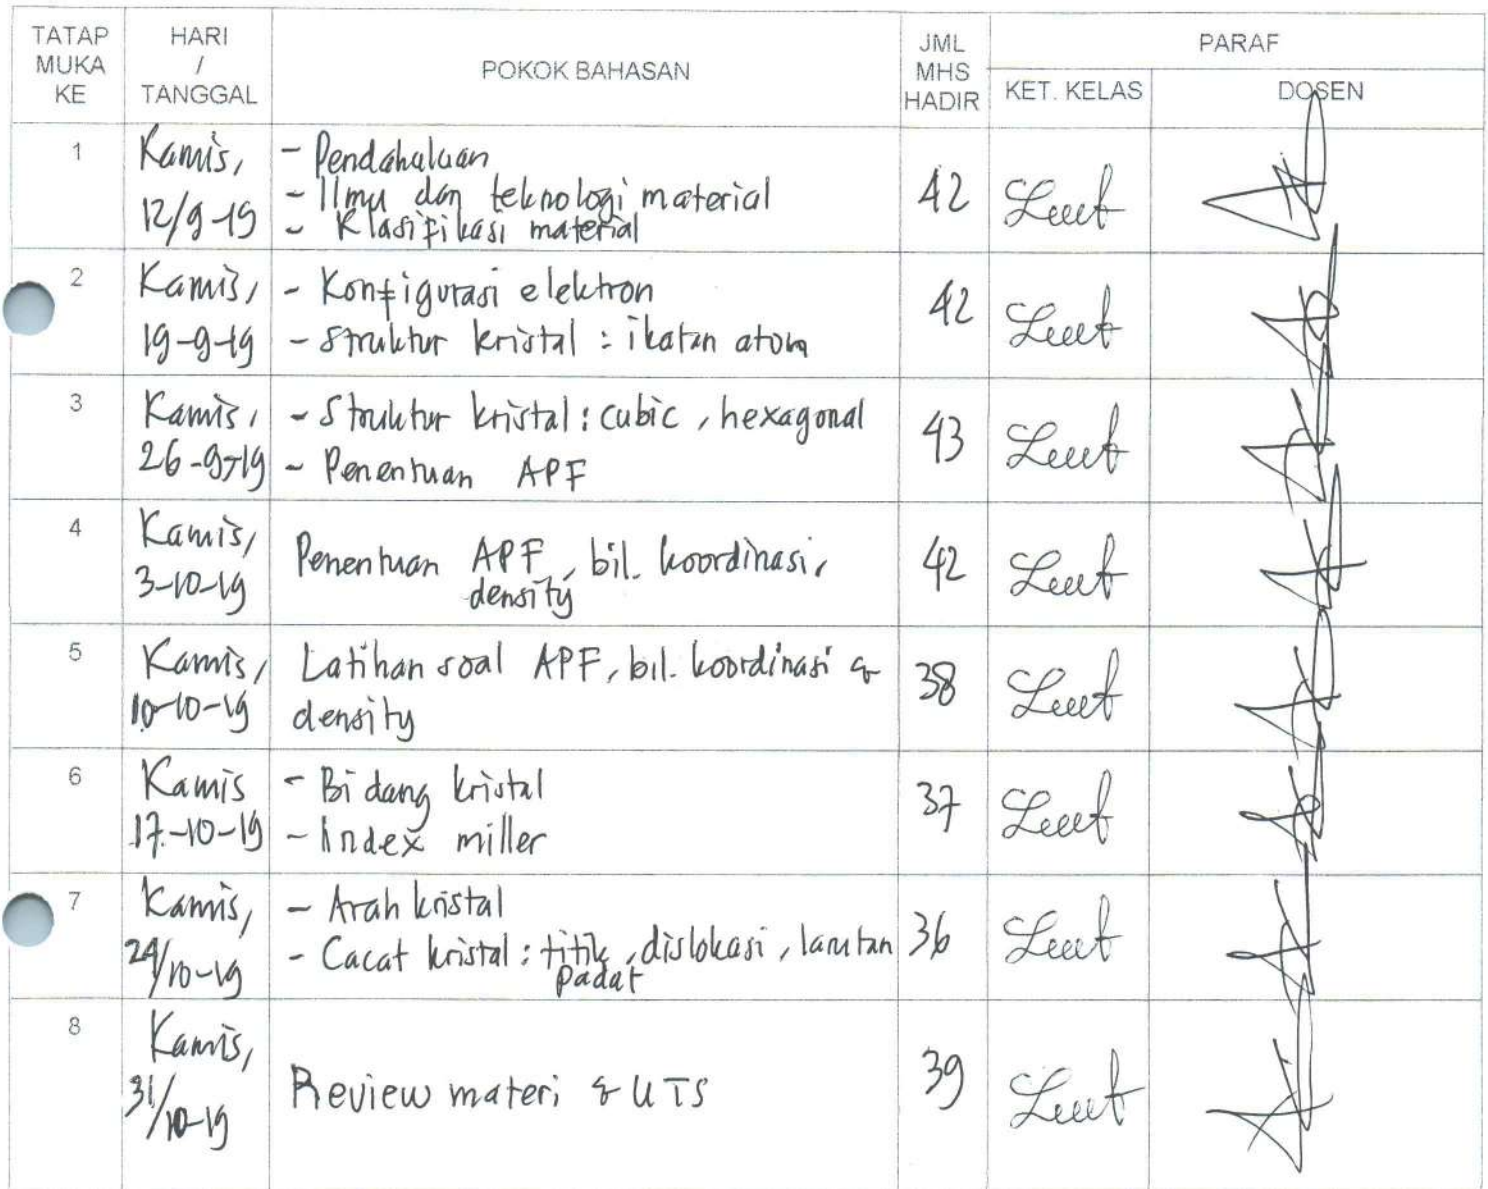 TATAP MUKA KE
HARI / TANGGAL
POKOK BAHASAN
JML MHS HADIR
PARAF
KET. KELAS
DOSEN
1
Kamis,
12/9-19
- Pendahuluan
- Ilmu dan teknologi material
- Klasifikasi material
42
2
Kamis,
19-9-19
- Konfigurasi elektron
- Struktur kristal : ikatan atom
42
3
Kamis,
26-9-19
- Struktur kristal : cubic, hexagonal
- Penentuan APF
43
4
Kamis,
3-10-19
Penentuan APF, bil. koordinasi,
density
42
5
Kamis,
10-10-19
Latihan soal APF, bil. koordinasi &
density
38
6
Kamis
17-10-19
- Bidang kristal
- Index miller
37
7
Kamis,
24/10-19
- Arah kristal
- Cacat kristal : titik, dislokasi, larutan
padat
36
8
Kamis,
31/10-19
Review materi & UTS
39